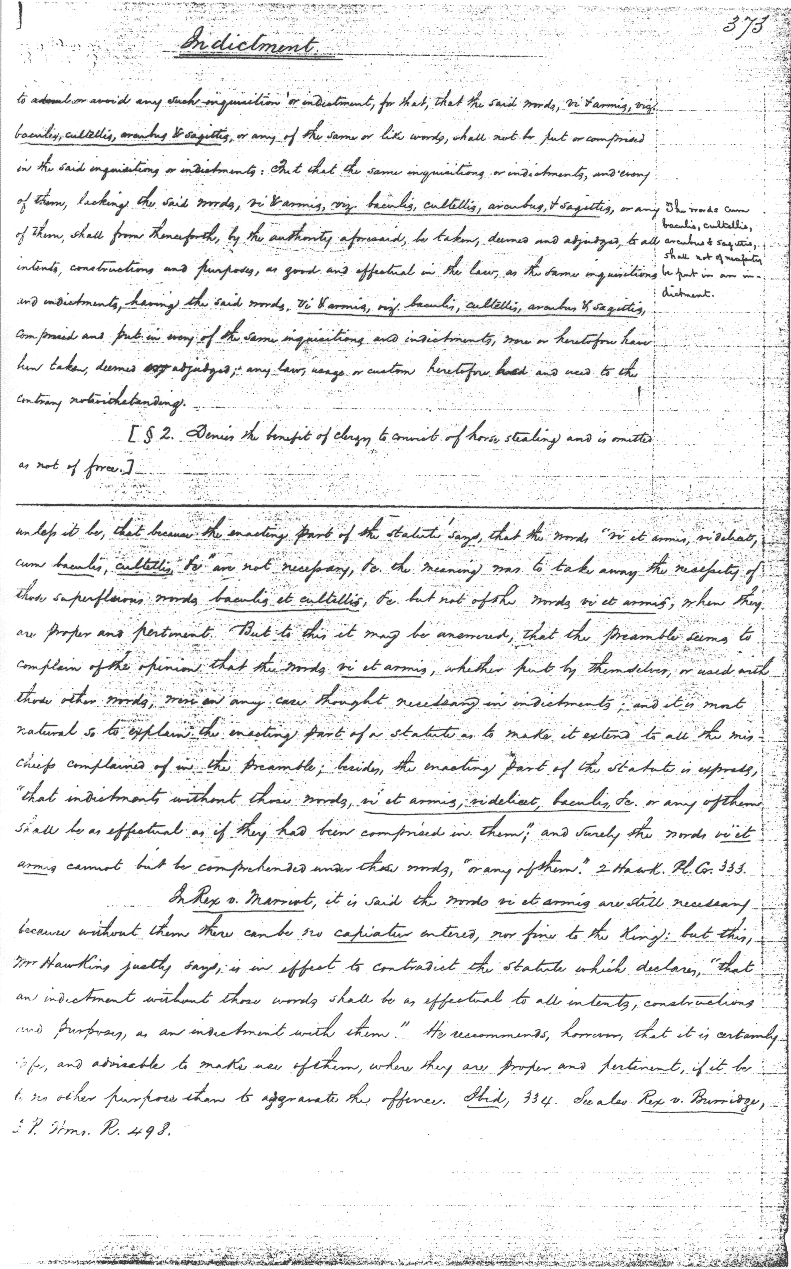 373
Indictment.
to annul or avoid any such inquisition or indictment, for that, that the said words, vi & armis, viz.
baculis, cultellis, arcubus & sagittis, or any of the same or like words, shall not be put or comprised
in the said inquisitions or indictments: But that the same inquisitions or indictments, and every
of them, lacking the said words, vi & armis, viz. baculis, cultellis, arcubus, & sagittis, or any
of them, shall from thenceforth, by the authority aforesaid, be taken, deemed and adjudged, to all
intents, constructions and purposes, as good and effectual in the law, as the same inquisitions
and indictments, having the said words, vi & armis, viz. baculis, cultellis, arcubus & sagittis,
comprised and put in every of the same inquisitions and indictments, were or heretofore have
been taken, deemed adjudged; any law, usage or custom heretofore had and used to the
contrary notwithstanding.
The words cum
baculis, cultellis,
arcubus & sagittis,
shall not of necessity
be put in an in-
dictment.
[§ 2. Denies the benefit of clergy to convict of horse stealing and is omitted
as not of force.]
unless it be, that because the enacting part of the statute says, that the words "vi et armis, videlicet,
cum baculis, cultellis, &c" are not necessary, &c. the meaning was to take away the necessity of
those superfluous words baculis et cultellis, &c. but not of the words vi et armis, when they
are proper and pertinent. But to this it may be answered, that the preamble seems to
complain of the opinion that the words vi et armis, whether put by themselves, or used with
those other words, were in any case thought necessary in indictments; and it is most
natural so to explain the enacting part of a statute as to make it extend to all the mis-
chiefs complained of in the preamble; besides, the enacting part of the statute is express,
"that indictments without those words, vi et armis, videlicet, baculis, &c. or any of them
shall be as effectual as if they had been comprised in them"; and surely the words vi et
armis cannot but be comprehended under those words, "or any of them." 2 Hawk. Pl. Cr. 333.
In Rex v. Marriot, it is said the words vi et armis are still necessary
because without them there can be no capiatur entered, nor fine to the King: but this,
Mr Hawkins justly says, is in effect to contradict the statute which declares, "that
an indictment without those words shall be as effectual to all intents, constructions
and purposes, as an indictment with them." He recommends, however, that it is certainly
safe, and advisable to make use of them, where they are proper and pertinent, if it be
to no other purpose than to aggravate the offence. Ibid, 334. See also Rex v. Burridge,
3 P. Wms. R. 498.